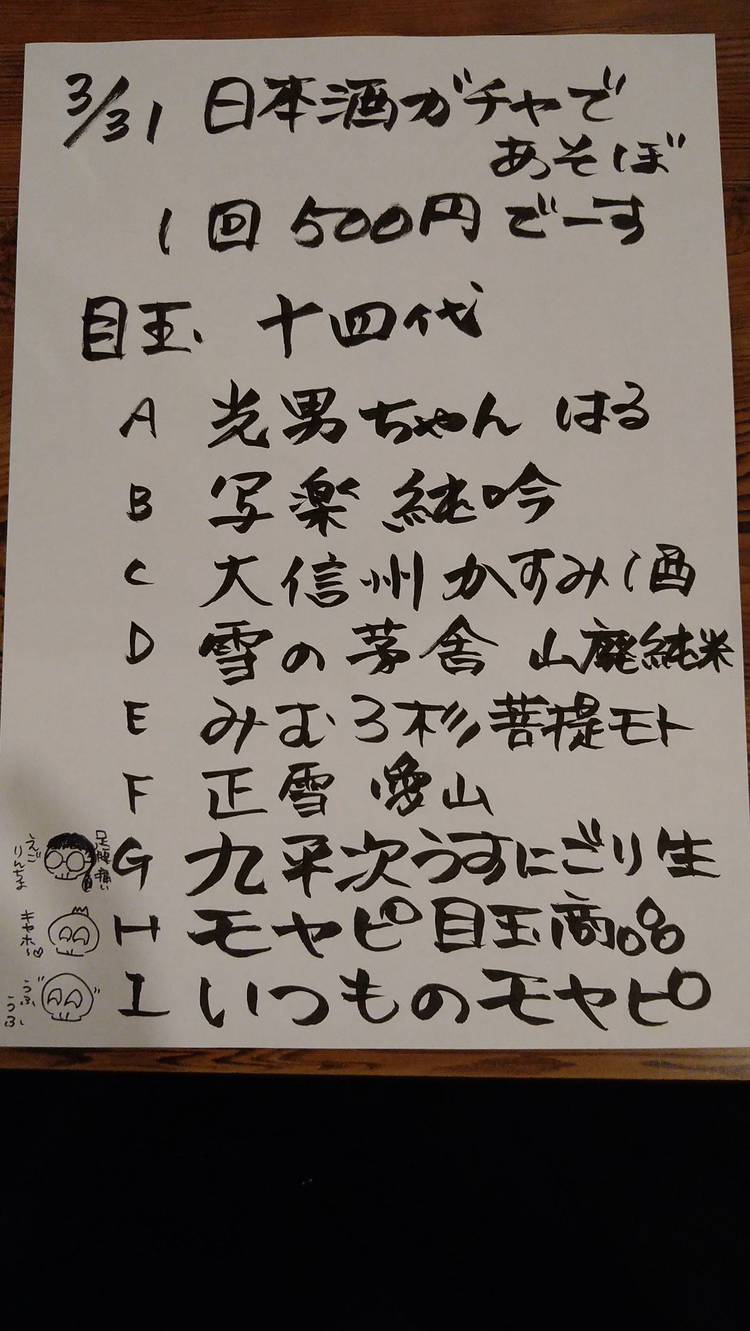 3/31 日本酒ガチャで
あそぼ
1回 500円 でーす
目玉 十四代
A 光男ちゃん はる
B 写楽 純吟
C 大信州 かすみ酒
D 雪の茅舎 山廃純米
E みむろ杉 菩提モト
F 正雪 愛山
G 九平次うすにごり生
H モヤピ目玉商品
I いつものモヤピ
えご
りんぢよ
キャホー♡
うふ
うふ